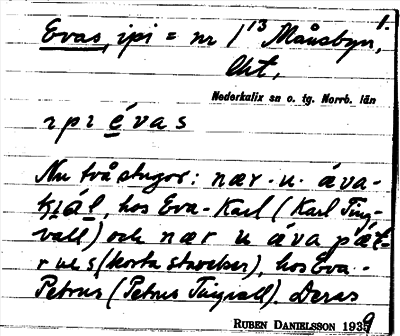 1.
Evas, ipi = nr 1¹³ Månsbyn,
Nederkalix sn o. tg. Norrb. län
ɪpɪ évas
Nu två stugor: nær · u · áva-
kɪál, hos Eva-Karl (Karl Ting-
vall) och nær u áva pæt-
r (korta stavelser), hos Eva-
Petrus (Petrus Tingvall). Deras
RUBEN DANIELSSON 1939